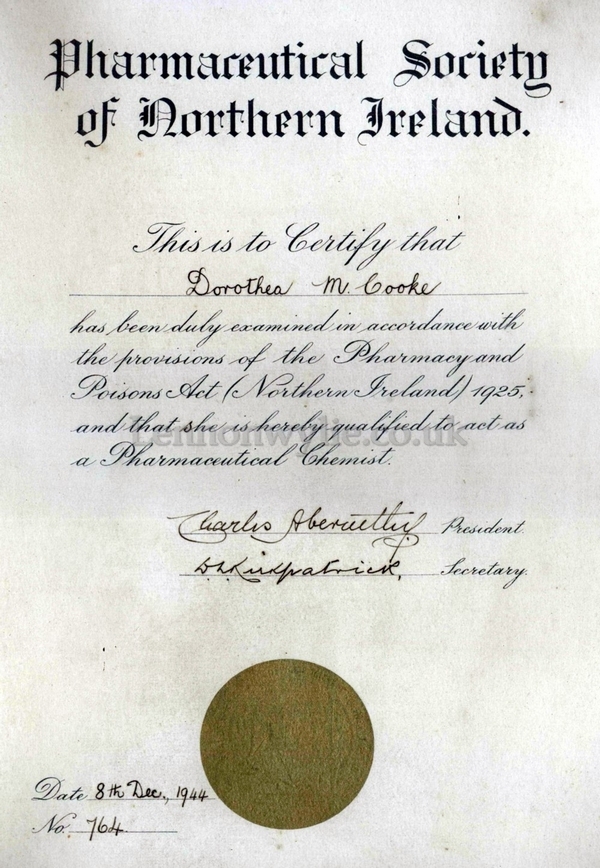 Pharmaceutical Society
of Northern Ireland.
This is to Certify that
Dorothea M. Cooke
has been duly examined in accordance with
the provisions of the Pharmacy and
Poisons Act (Northern Ireland) 1925,
and that she is hereby qualified to act as
Lennonwylie.co.uk
a Pharmaceutical Chemist.
Charles Abernethy President.
D L Kirkpatrick, Secretary.
Date 8th Dec., 1944
No. 764